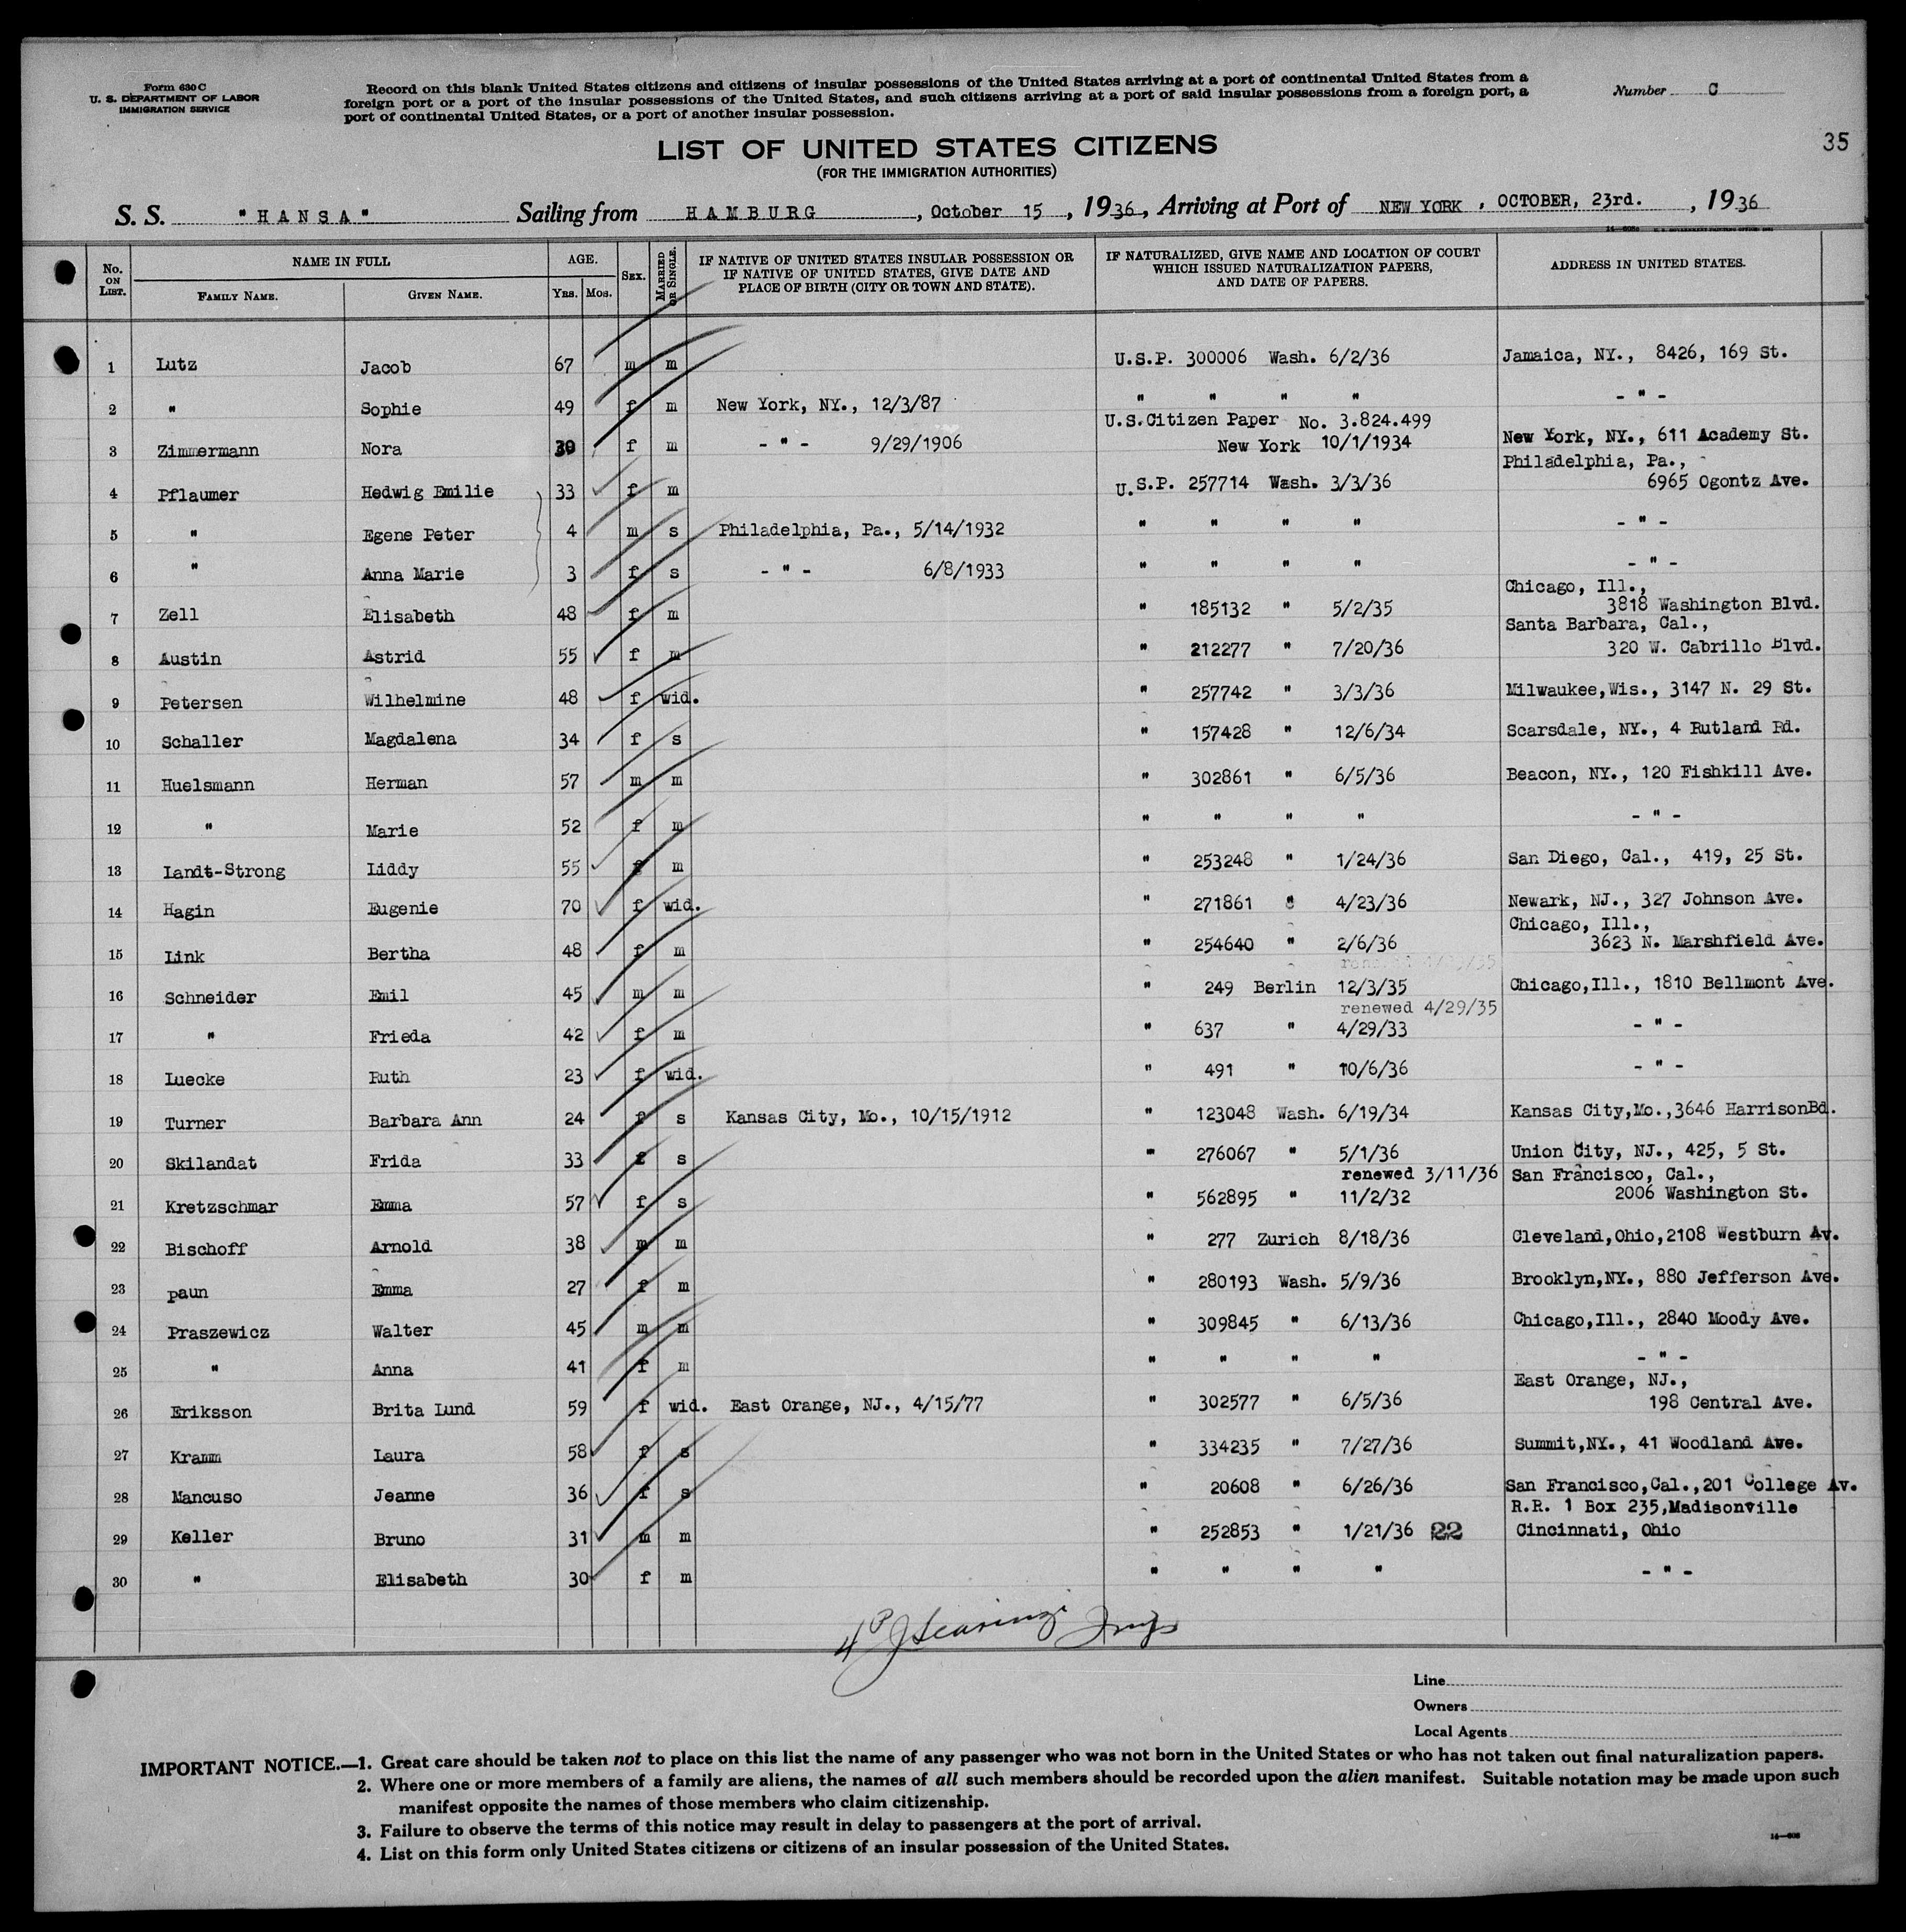 Form 630 C
U. S. DEPARTMENT OF LABOR
IMMIGRATION SERVICE
Record on this blank United States citizens and citizens of insular possessions of the United States arriving at a port of continental United States from a
foreign port or a port of the insular possessions of the United States, and such citizens arriving at a port of said insular possessions from a foreign port, a
port of continental United States, or a port of another insular possession.
Number C
35
LIST OF UNITED STATES CITIZENS
(FOR THE IMMIGRATION AUTHORITIES)
S. S. "HANSA" Sailing from HAMBURG, October 15, 1936, Arriving at Port of NEW YORK, OCTOBER, 23rd., 1936
No. ON LIST. NAME IN FULL FAMILY NAME. GIVEN NAME. AGE. YRS. MOS. SEX. MARRIED OR SINGLE. IF NATIVE OF UNITED STATES INSULAR POSSESSION OR IF NATIVE OF UNITED STATES, GIVE DATE AND PLACE OF BIRTH (CITY OR TOWN AND STATE). IF NATURALIZED, GIVE NAME AND LOCATION OF COURT WHICH ISSUED NATURALIZATION PAPERS, AND DATE OF PAPERS. ADDRESS IN UNITED STATES.
1 Lutz Jacob 67 m m U.S.P. 300006 Wash. 6/2/36 Jamaica, NY., 8426, 169 St.
2 " Sophie 49 f m New York, NY., 12/3/87 " " " " - " -
U.S.Citizen Paper No. 3.824.499
3 Zimmermann Nora 30 f m - " - 9/29/1906 New York 10/1/1934 New York, NY., 611 Academy St.
Philadelphia, Pa.,
4 Pflaumer Hedwig Emilie 33 f m U.S.P. 257714 Wash. 3/3/36 6965 Ogontz Ave.
5 " Egene Peter 4 m s Philadelphia, Pa., 5/14/1932 " " " " - " -
6 " Anna Marie 3 f s - " - 6/8/1933 " " " " - " -
Chicago, Ill.,
7 Zell Elisabeth 48 f m " 185132 " 5/2/35 3818 Washington Blvd.
Santa Barbara, Cal.,
8 Austin Astrid 55 f m " 212277 " 7/20/36 320 W. Cabrillo Blvd.
9 Petersen Wilhelmine 48 f wid. " 257742 " 3/3/36 Milwaukee,Wis., 3147 N. 29 St.
10 Schaller Magdalena 34 f s " 157428 " 12/6/34 Scarsdale, NY., 4 Rutland Rd.
11 Huelsmann Herman 57 m m " 302861 " 6/5/36 Beacon, NY., 120 Fishkill Ave.
12 " Marie 52 f m " " " " - " -
13 Landt-Strong Liddy 55 f m " 253248 " 1/24/36 San Diego, Cal., 419, 25 St.
14 Hagin Eugenie 70 f wid. " 271861 " 4/23/36 Newark, NJ., 327 Johnson Ave.
Chicago, Ill.,
15 Link Bertha 48 f m " 254640 " 2/6/36 3623 N. Marshfield Ave.
16 Schneider Emil 45 m m " 249 Berlin 12/3/35 Chicago,Ill., 1810 Bellmont Ave.
renewed 4/29/35
17 " Frieda 42 f m " 637 " 4/29/33 - " -
18 Luecke Ruth 23 f wid. " 491 " 10/6/36 - " -
19 Turner Barbara Ann 24 f s Kansas City, Mo., 10/15/1912 " 123048 Wash. 6/19/34 Kansas City,Mo.,3646 HarrisonBd.
20 Skilandat Frida 33 f s " 276067 " 5/1/36 Union City, NJ., 425, 5 St.
renewed 3/11/36 San Francisco, Cal.,
21 Kretzschmar Emma 57 f s " 562895 " 11/2/32 2006 Washington St.
22 Bischoff Arnold 38 m m " 277 Zurich 8/18/36 Cleveland,Ohio,2108 Westburn Av.
23 paun Emma 27 f m " 280193 Wash. 5/9/36 Brooklyn,NY., 880 Jefferson Ave.
24 Praszewicz Walter 45 m m " 309845 " 6/13/36 Chicago,Ill., 2840 Moody Ave.
25 " Anna 41 f m " " " " - " -
East Orange, NJ.,
26 Eriksson Brita Lund 59 f wid. East Orange, NJ., 4/15/77 " 302577 " 6/5/36 198 Central Ave.
27 Kramm Laura 58 f s " 334235 " 7/27/36 Summit,NY., 41 Woodland Ave.
28 Mancuso Jeanne 36 f s " 20608 " 6/26/36 San Francisco,Cal.,201 College Av.
R.R. 1 Box 235,Madisonville
29 Keller Bruno 31 m m " 252853 " 1/21/36 22 Cincinnati, Ohio
30 " Elisabeth 30 f m " " " " - " -
Line
Owners
Local Agents
IMPORTANT NOTICE.—1. Great care should be taken not to place on this list the name of any passenger who was not born in the United States or who has not taken out final naturalization papers.
2. Where one or more members of a family are aliens, the names of all such members should be recorded upon the alien manifest. Suitable notation may be made upon such
manifest opposite the names of those members who claim citizenship.
3. Failure to observe the terms of this notice may result in delay to passengers at the port of arrival.
4. List on this form only United States citizens or citizens of an insular possession of the United States.